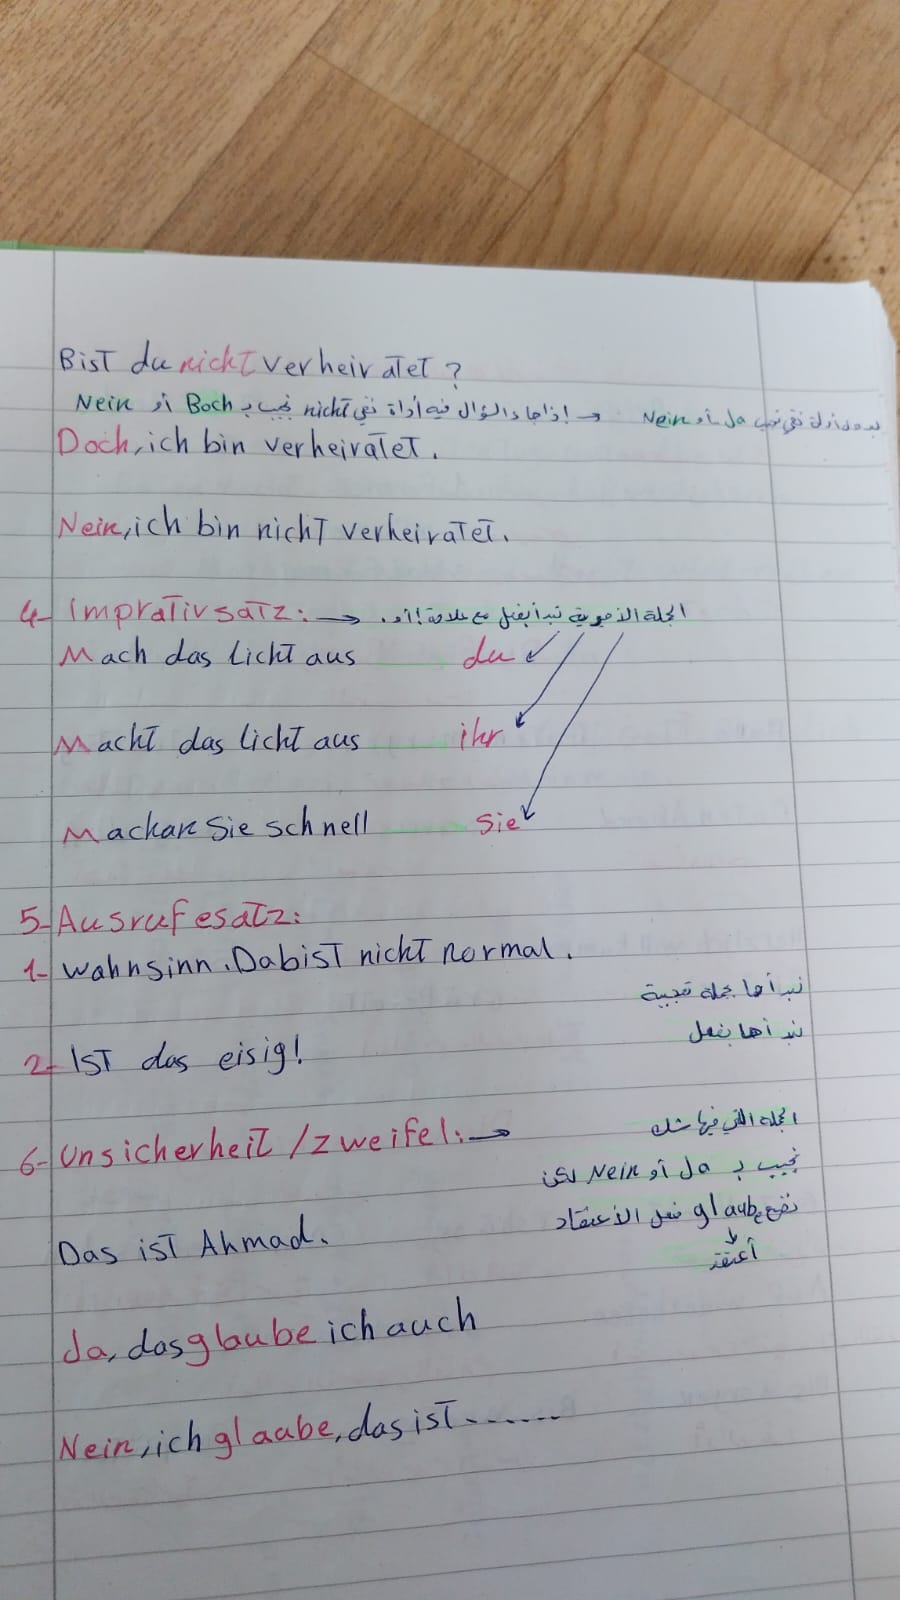 Bist du nicht verheiratet ?
إذا جاء السؤال فيه أداة نفي nicht نجيب بـ Boch أو Nein
نفي نجيب Ja أو Nein
Doch, ich bin verheiratet.
Nein, ich bin nicht verheiratet.
4- Imprativsatz: → الجملة الأمرية نبدأ بفعل مع علامة ! أو .
Mach das Licht aus du
Macht das licht aus ihr
Machan Sie schnell Sie
5- Ausrufesatz:
1- Wahnsinn. Dabist nicht normal.
نبدأها بجملة تعجبية
2- Ist das eisig!
نبدأها بفعل
6- Unsicherheit / Zweifel: →
الجملة التي فيها شك
نجيب بـ Ja أو Nein لكن
نضع glaube فعل الأعتقاد
أعتقد
Das ist Ahmad.
Ja, das glaube ich auch
Nein, ich glaabe, das ist.......